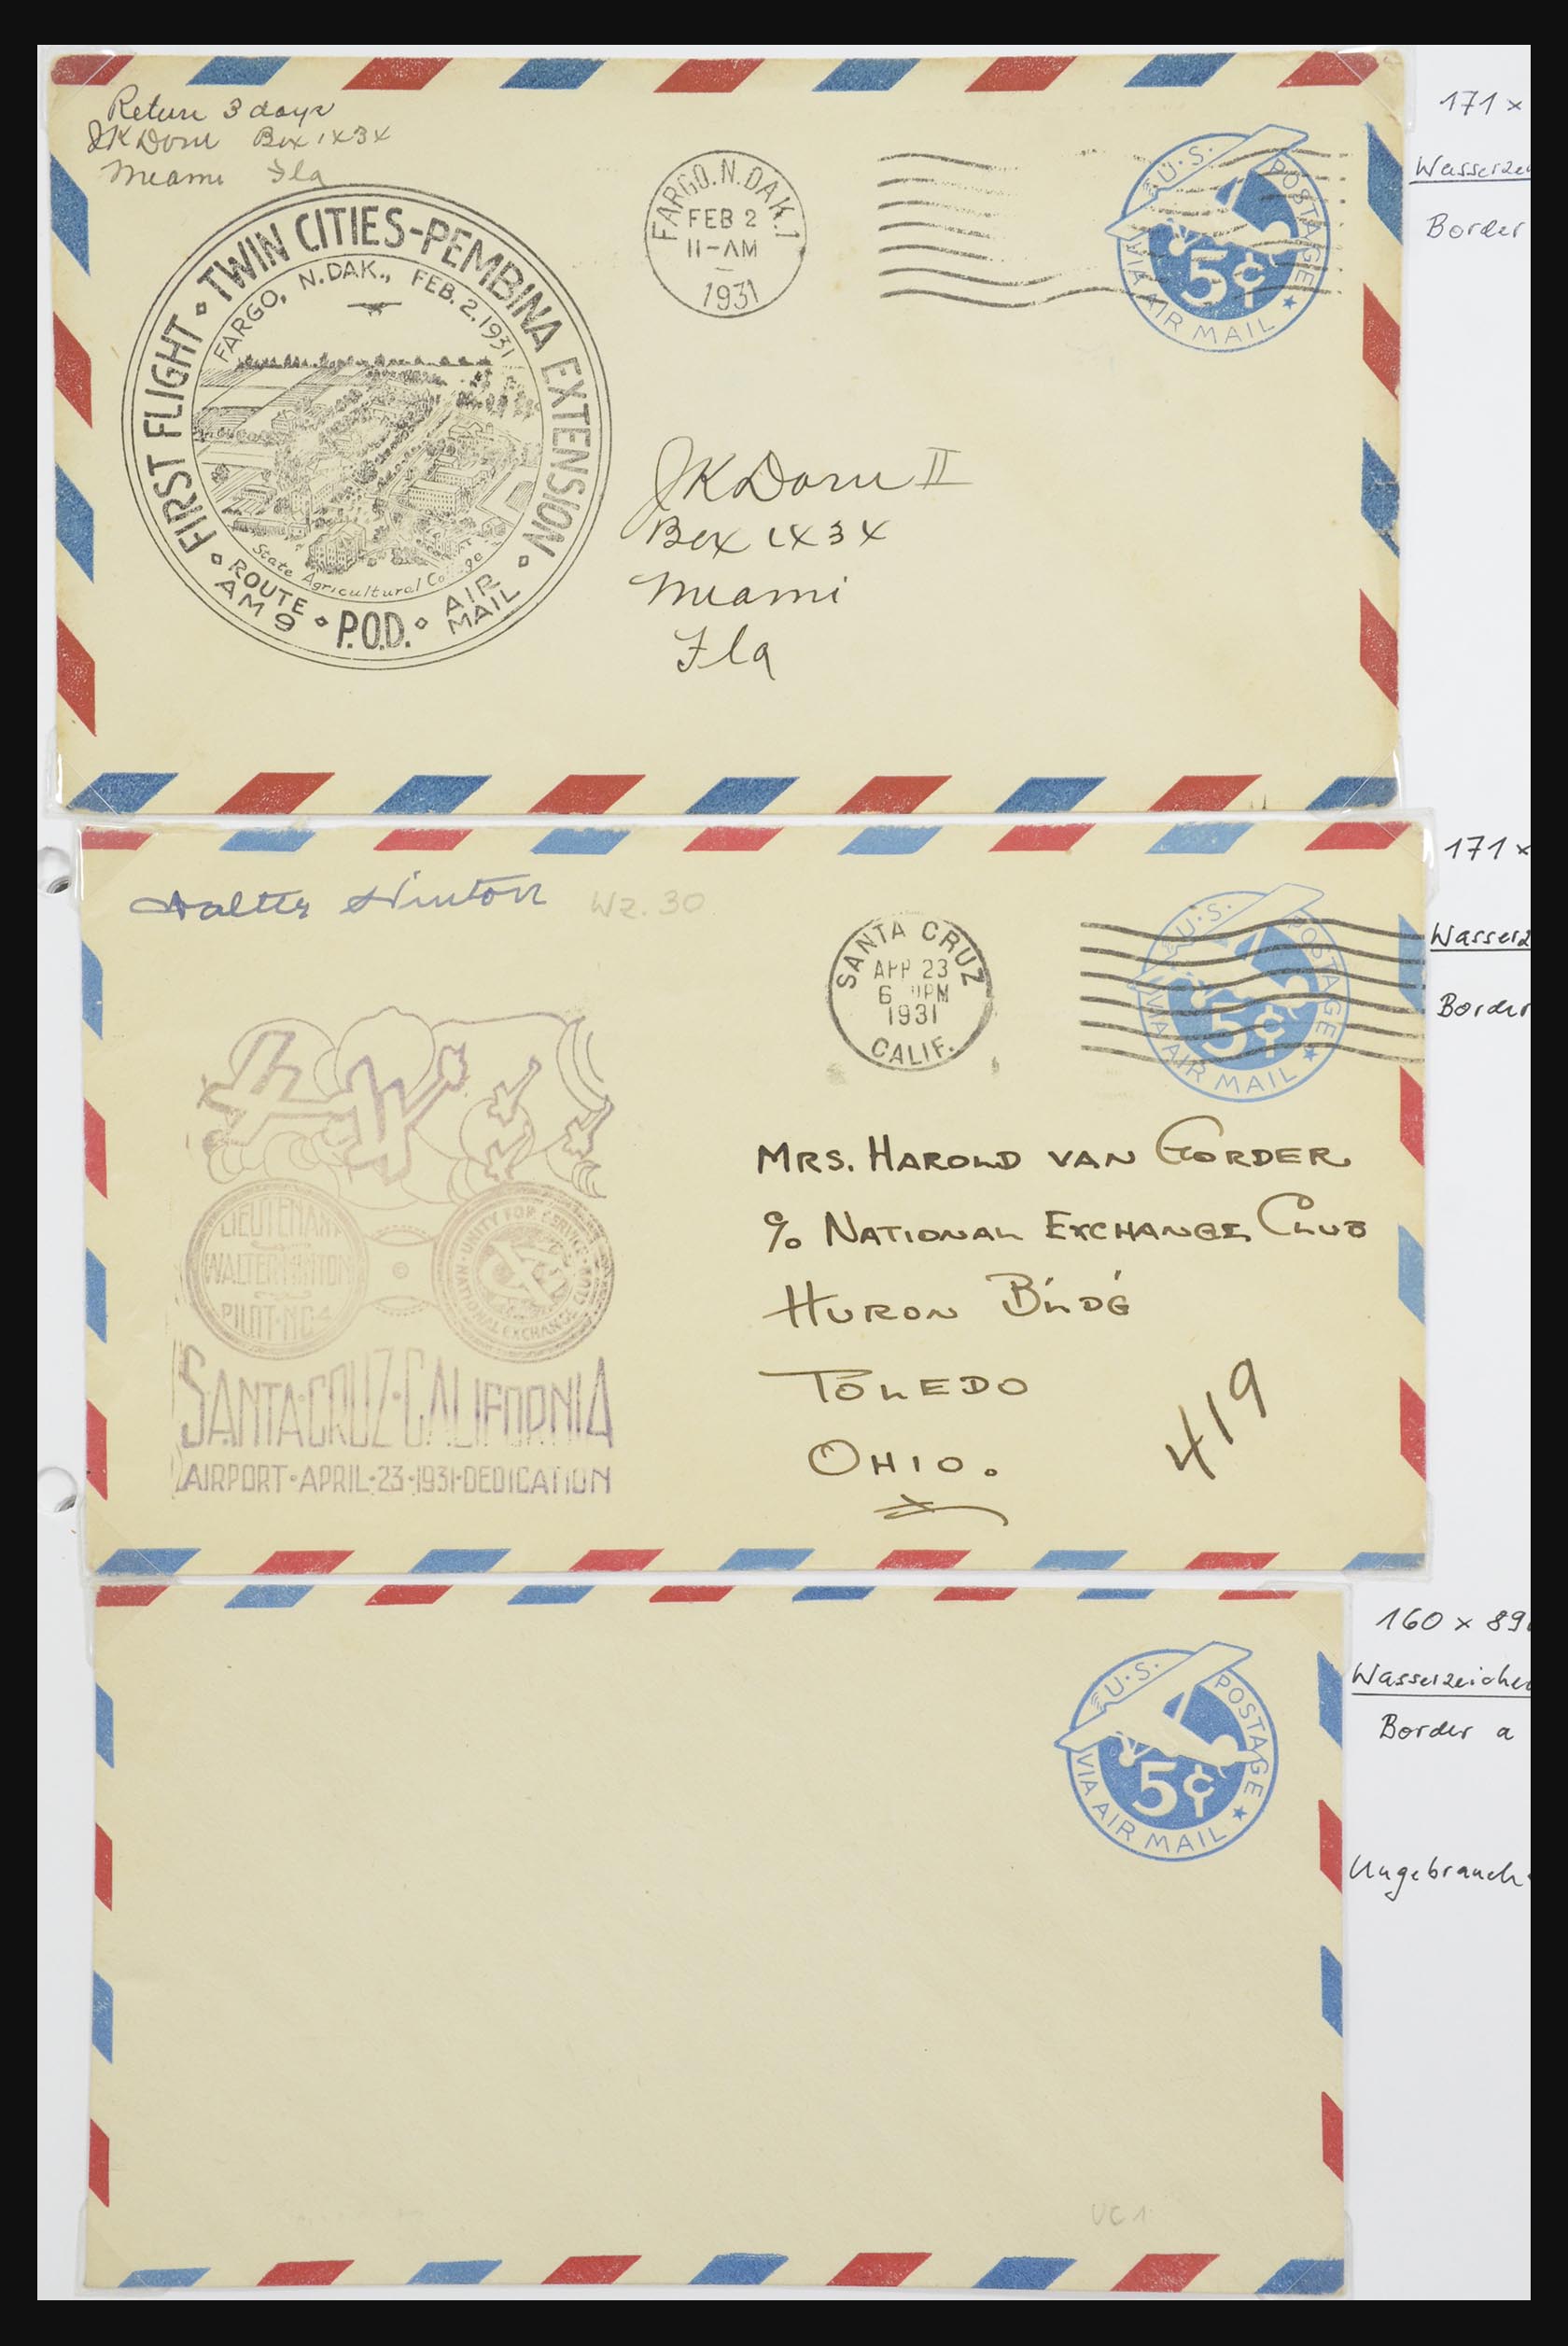 Return 3 days
JK Dorn Box 1X3X
Miami Fla
FIRST FLIGHT ◇ TWIN CITIES-PEMBINA EXTENSION
FARGO, N.DAK., FEB.2.1931
State Agricultural College
ROUTE AM 9 ◇ P.O.D. ◇ AIR MAIL
FARGO.N.DAK.1
FEB 2
11-AM
1931
U.S. POSTAGE
5¢
VIA AIR MAIL
JK Dorn II
Box 1X3X
Miami
Fla
171 x
Wasserzei
Border
Walter Hinton
Wz. 30
SANTA CRUZ
APR 23
6 PM
1931
CALIF.
U.S. POSTAGE
5¢
VIA AIR MAIL
LIEUTENANT
WALTER HINTON
PILOT·NC4
UNITY FOR SERVICE
NATIONAL EXCHANGE CLUB
SANTA·CRUZ·CALIFORNIA
AIRPORT·APRIL·23·1931·DEDICATION
MRS. HAROLD VAN GORDER
c/o NATIONAL EXCHANGE CLUB
HURON B'LD'G
TOLEDO
OHIO.
419
171 x
Wasserz
Border
U.S. POSTAGE
5¢
VIA AIR MAIL
UC 1
160 x 89
Wasserzeichen
Border a
Ungebrauch